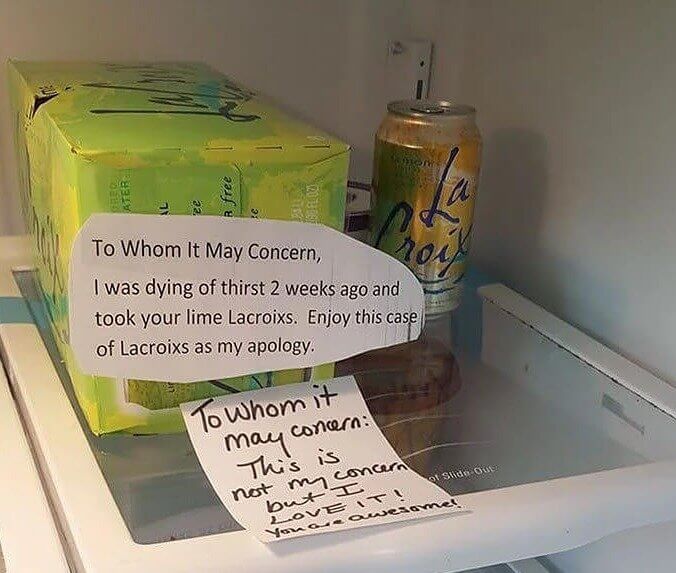 La Croix
To Whom It May Concern,
I was dying of thirst 2 weeks ago and
took your lime Lacroixs. Enjoy this case
of Lacroixs as my apology.
To Whom it
may concern:
This is
not my concern
but I
LOVE IT!
You are awesome!
of Slide-Out